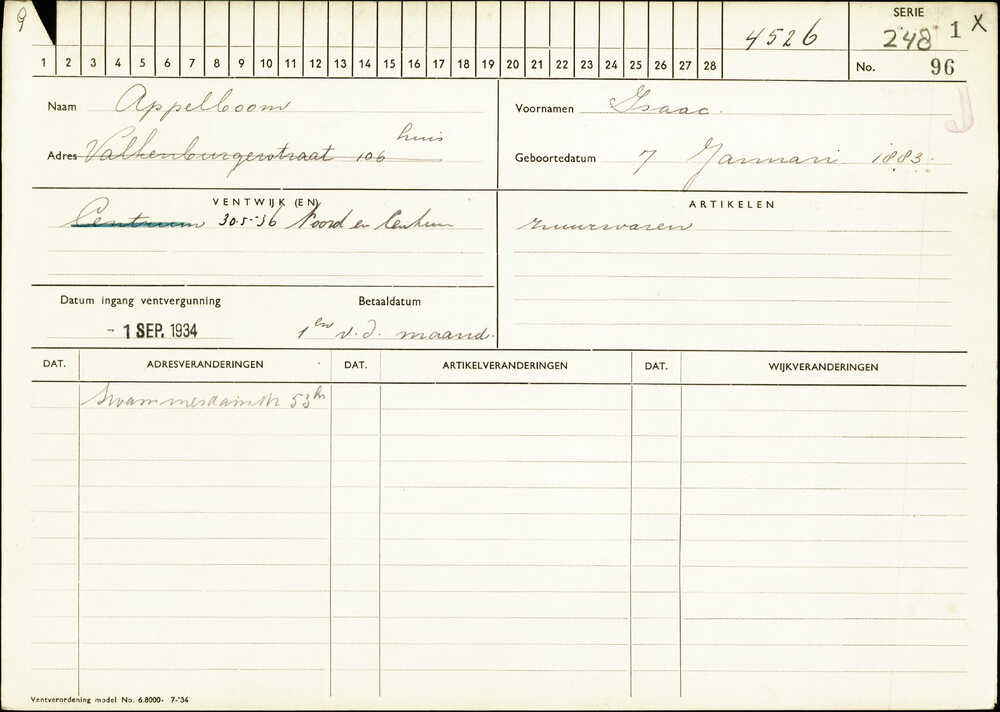 9
SERIE
4526 248 1 X
1 2 3 4 5 6 7 8 9 10 11 12 13 14 15 16 17 18 19 20 21 22 23 24 25 26 27 28 No. 96
J
Naam Appelboom Voornamen Isaac.
huis
Adres Valkenburgerstraat 106 Geboortedatum 7 Januari 1883.
VENTWIJK (EN) ARTIKELEN
Centrum 30-5-'36 Noord en Centrum zuurwaren
Datum ingang ventvergunning Betaaldatum
- 1 SEP. 1934 1en v.d. maand.
DAT. ADRESVERANDERINGEN DAT. ARTIKELVERANDERINGEN DAT. WIJKVERANDERINGEN
Swammerdamstr 53hs
Ventverordening model No. 6.8000- 7-'34